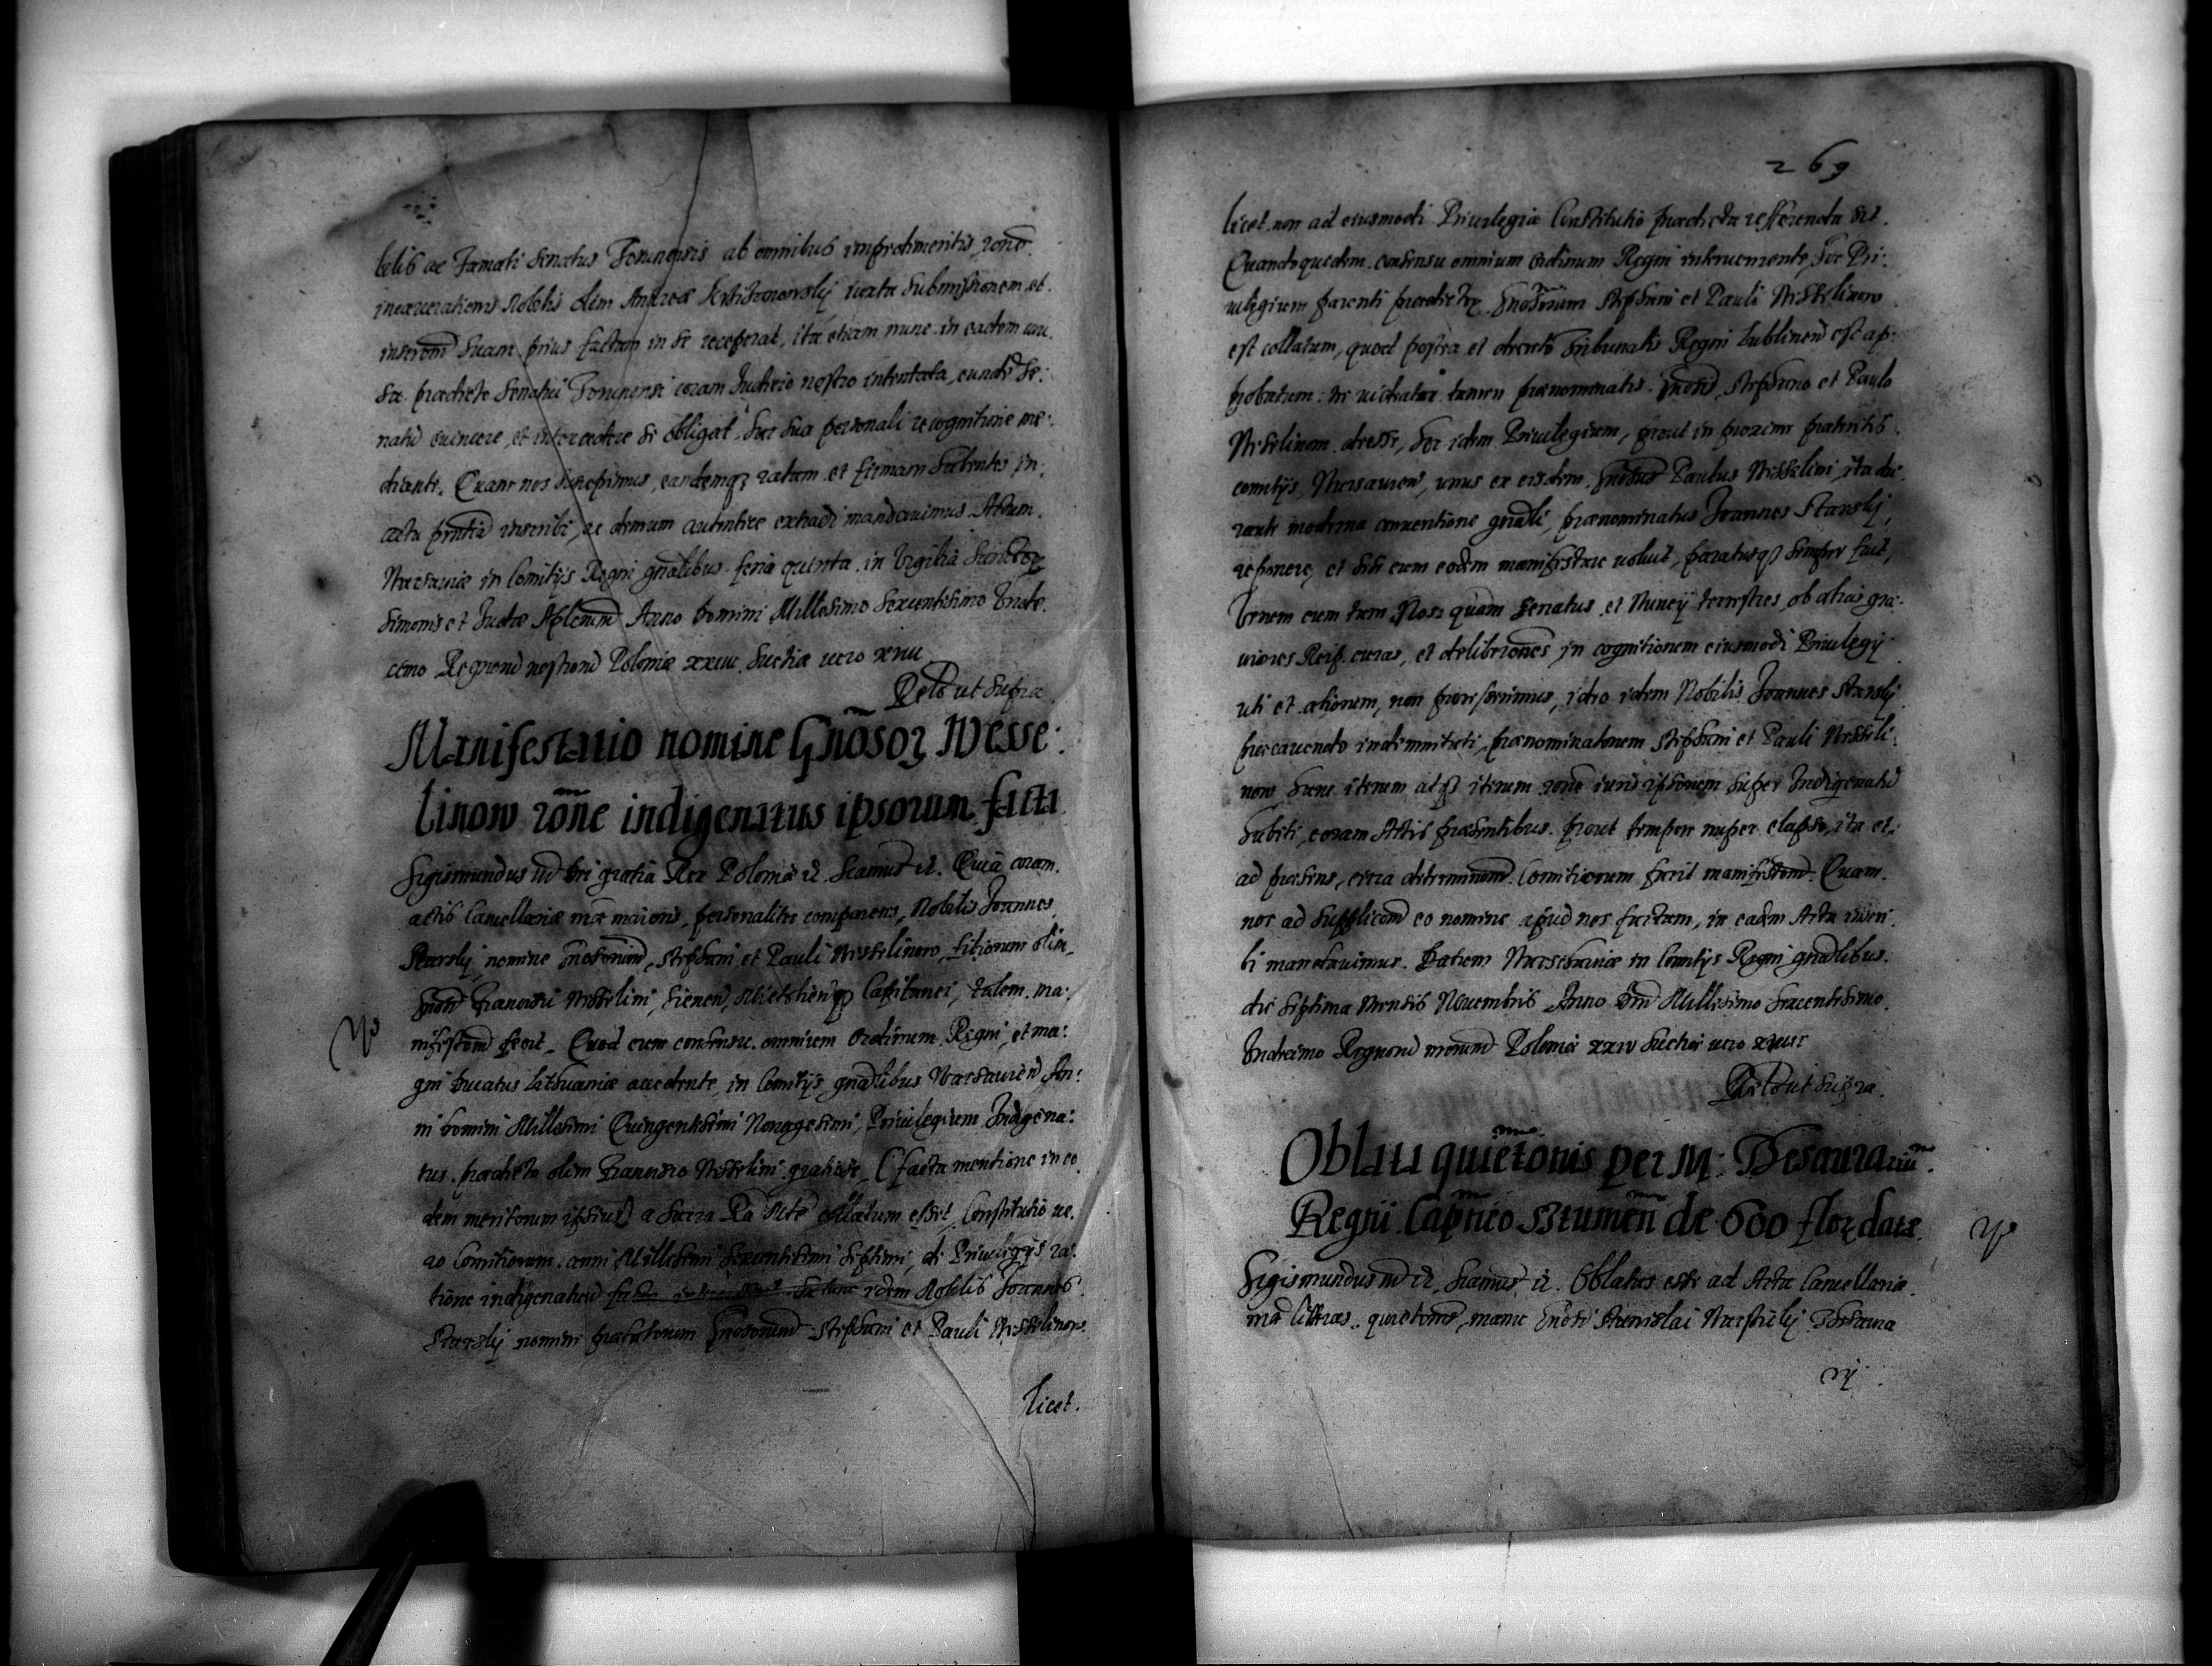 bilis ac Famati Senatus Torunensis ab omnibus impedimentis, rone
incarcerationis Nobilis olim Andreæ iuxta submissionem et
inscrõnẽ suam prius factam in se receperat, ita etiam nunc in eadem cau
sa prædicto Senatui Torunensi coram Iudicio nostro intentata, eundẽ Se:
natũ euincere, et intercedere se obligat hac sua personali recognitione me:
diante. Quam nos suscepimus, eandemqȝ ratam et firmam habentes in
acta pñtia inscribi, ac demum autentice extradi mandauimus Actum
Warsauiæ in Comitijs Regni gñalibus feria quinta in Vigilia Sanctoꝝ
Simonis et Iudæ Aplorum Anno Domini Millesimo Sexcentesimo Vnde
cimo Regnorũ nostrorũ Poloniæ xxiiii Suetiæ uero xviii
Relõ ut supra
Manifestatio nomine Gñosoꝝ Wesse:
linow rõne indigenatus ipsorum facta
Sigismundus iii Dei gratia Rex Poloniæ ec. Significamus ec. Quia coram
actis Cancellariæ nræ maioris, personaliter comparens, Nobilis Joannes
Starsky, nomine Gnosorum, Stephani et Pauli Wesselinow, filiorum olim
Gnosi Francisci Wesselini, Capitanei, talem ma:
nifestõnẽ fecit. Quod cum consensu omnium Ordinum Regni, et ma:
gni Ducatus Lithuaniæ accedente, in Comitijs gñalibus Warsauieñ An:
ni Domini Millesimi Quingentesimi Nonagesimi, Priuilegium Indigena:
tus prædicto olim Francisco Wesselini gratiose (facta mentione in eo
dem meritorum ipsius) a Sacra Ra Mtte collatum esset, Constitutio ue
ro Comitiorum anni Millesimi Sexcentesimi Septimi, de Priuilegijs ra:
tione indigenatuũ idem Nobilis Joannes
Starsky nomine præfatorum Gnosorum Stephani et Pauli Wesselinow
licet.
269
licet non ad eiusmodi Priuilegia Constitutio prædicta refferenda sit
Quandoquidem consensu omnium Ordinum Regni interueniente, hoc Pri:
uilegium parenti prædictoꝝ Gnosorum Stephani et Pauli Wesselinow
est collatum, quod postea et decreto Tribunalis Regni Lublineñ est ap:
probatum: ne uideatur tamen prænominatis Gnosis Stephano et Paulo
Wesselinow deesse, hoc idem Priuilegium, prout in proxime præteritis
comitijs Warsauieñ, unus ex eisdem Gnosus Paulus Wesselini, ita du
rante moderna conuentione gñali, prænominatus Joannes Starsky,
reponere, et sese cum eodem manifestare uoluit, paratusqȝ semper fuit,
Verum cum tum Nos, quam Senatus et Nuncij terrestres, ob alias gra:
uiores Reip. curas, et deliberõnes, in cognitionem eiusmodi Priuilegij
uti et aliorum, non processerimus, ideo idem Nobilis Joannes Starsky
præcauendo indemnitati, prænominatorum Stephani et Pauli Wesseli
now hanc iterum atqȝ iterum rone iuris ipsorum super Indigenatũ
habiti, coram Actis præsentibus, prout tempore nuper elapso, ita et
ad præsens, circa determinõnẽ Comitiorum fecit manifestõnẽ. Quam
nos ad supplicõnẽ eo nomine apud nos factam, in eadem Acta inscri
bi mandauimus. Datum Warschauiæ in Comitijs Regni gñalibus
die septima Mensis Nouembris Anno Dñi Millesimo Sexcentesimo
Vndecimo Regnorũ nrorum Poloniæ xxiv Suetiæ uero xviii
Relõ ut supra.
Oblata quietõnis per M: Thesaurariũ
Regni Capñeo Stumeñ de 600 floꝝ datæ
Sigismundus iii ec. Significamus ec. Oblatas esse ad Acta Cancellariæ
nræ litteras quietõnis, manu Gnosi Stanislai Warszicky Thesaura
rij